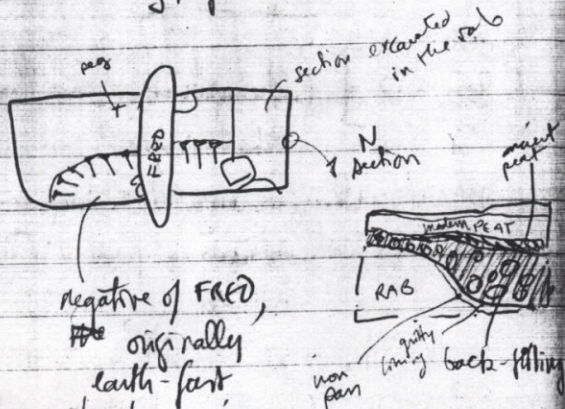 peg
section excavated
in the rab
FRED
N
section
ancient
peat
modern PEAT
RAB
negative of FRED,
originally
earth-fast
iron
pan
gritty
lining
back-filling